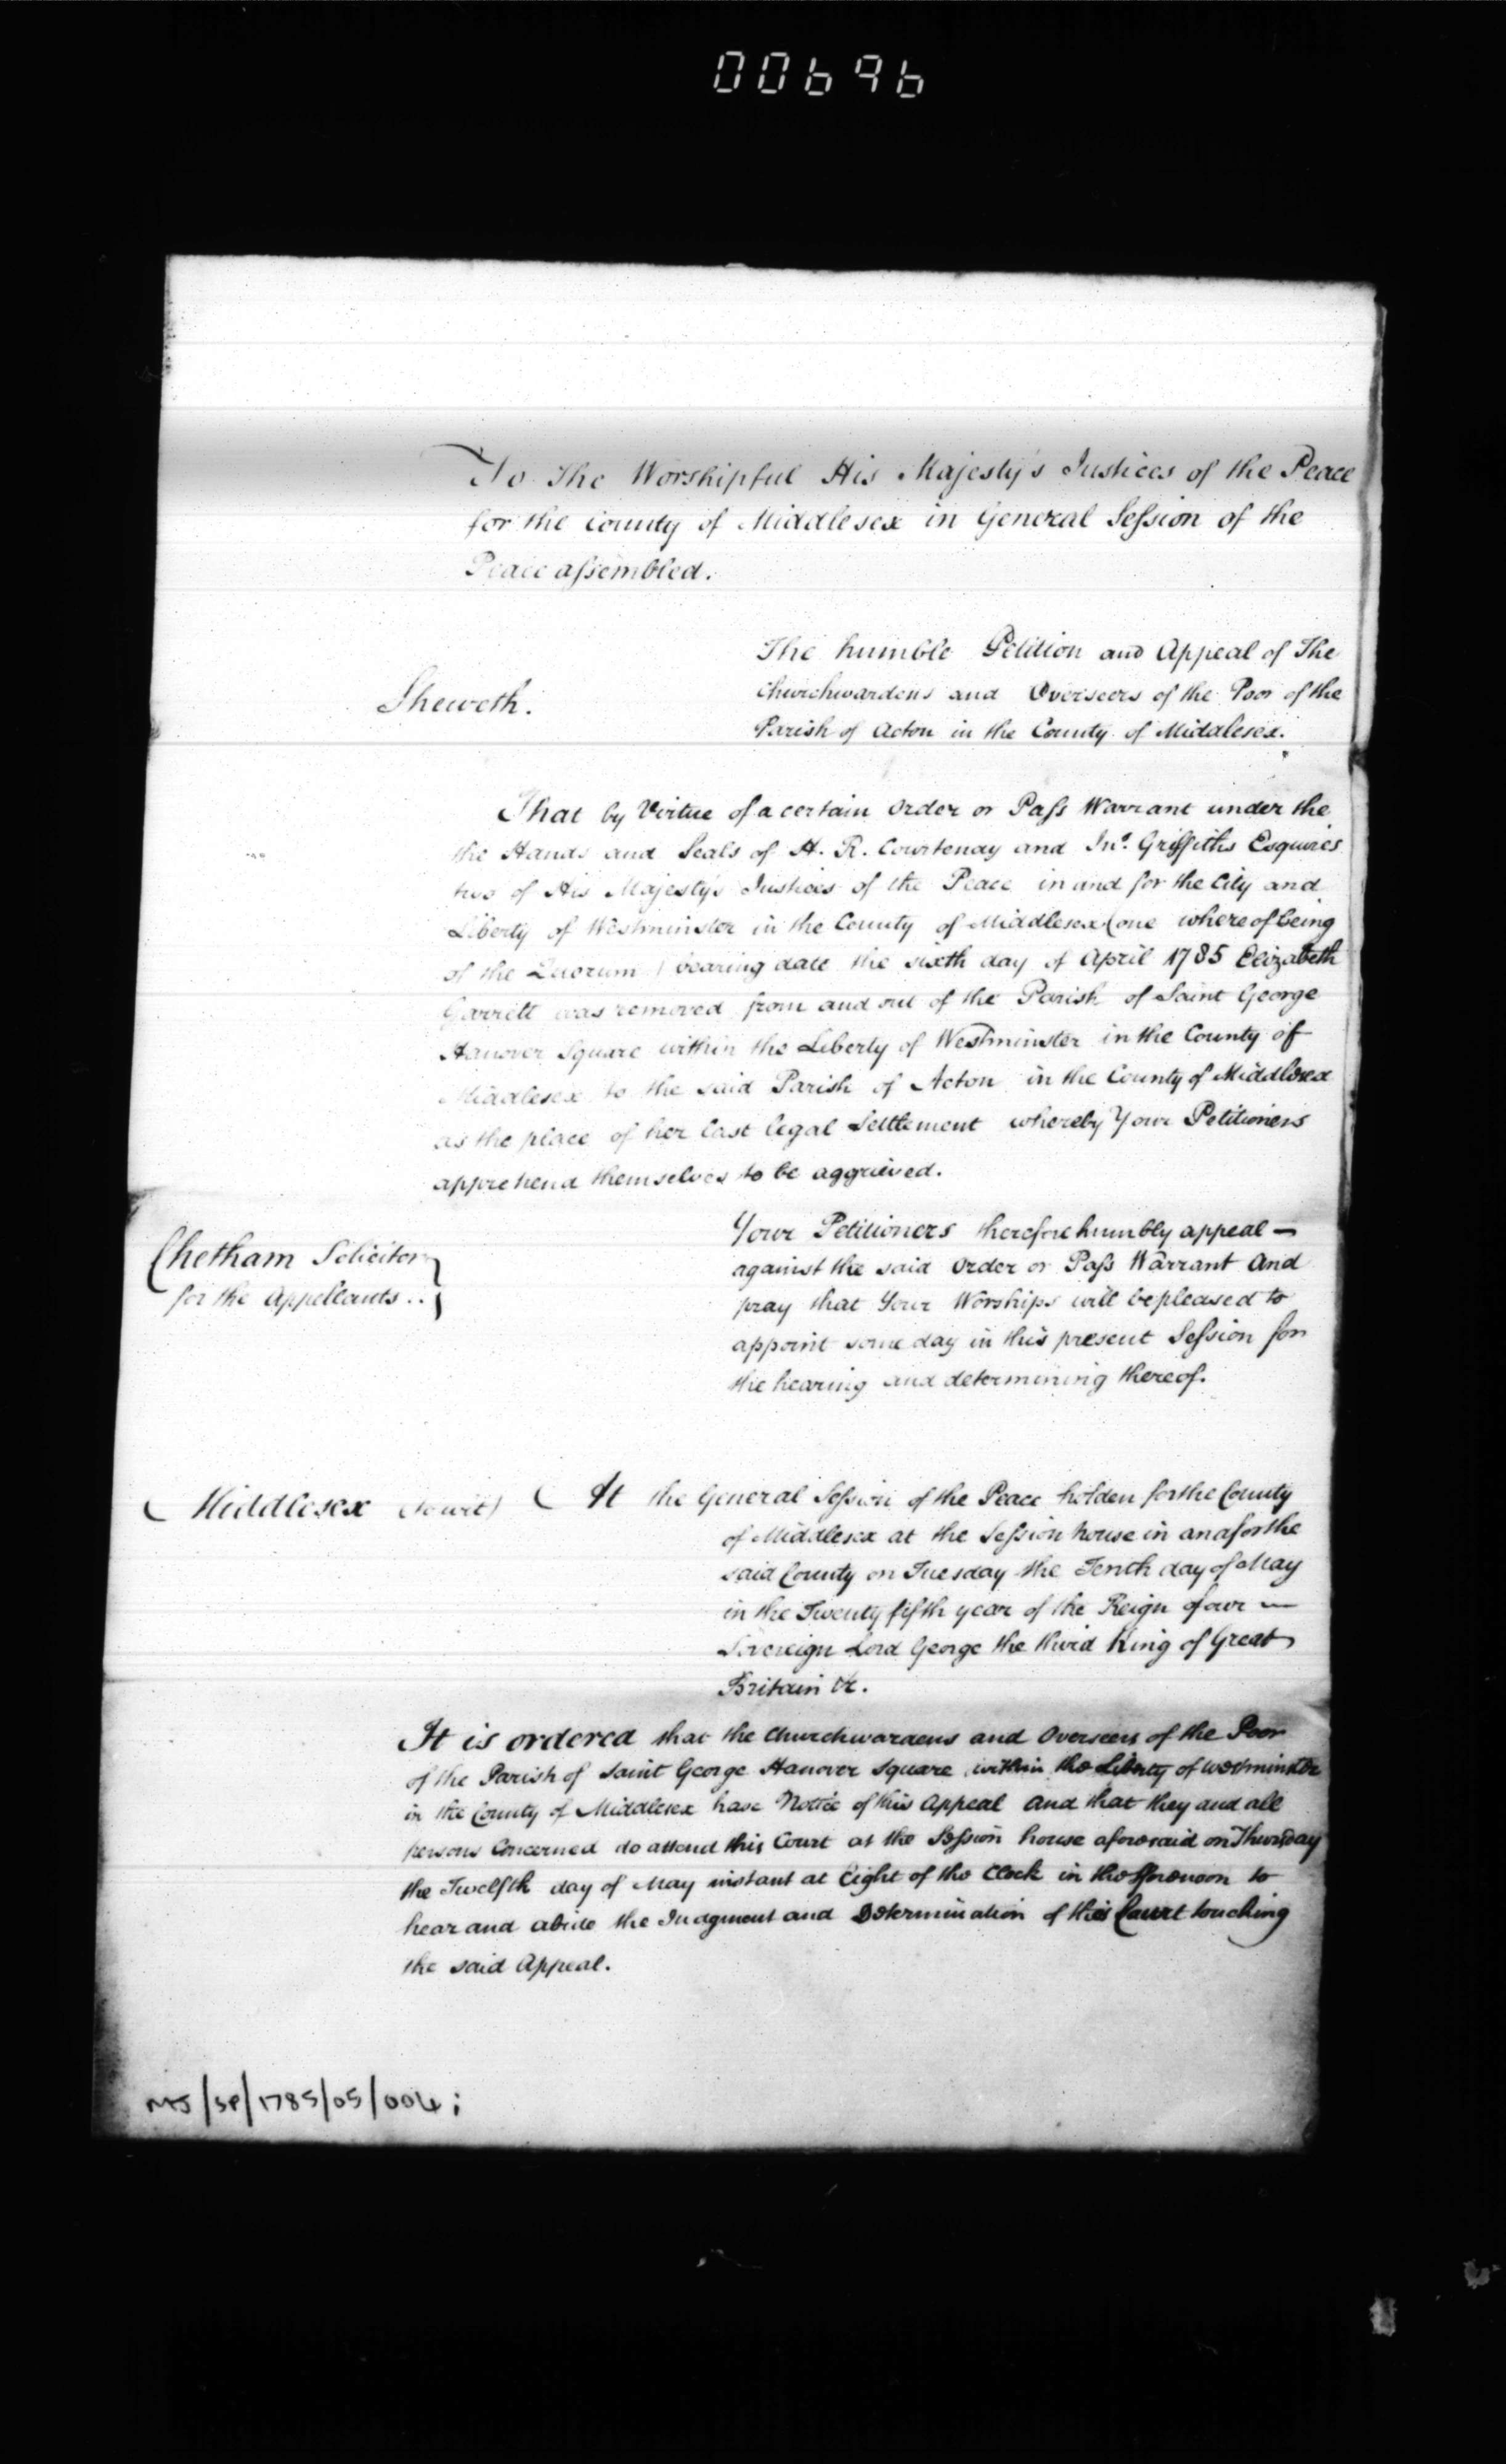 00696
To The Worshipful His Majesty's Justices of the Peace
for the County of Middlesex in General Seſsion of the
Peace aſsembled.
The humble Petition and Appeal of The
Churchwardens and Overseers of the Poor of the
Parish of Acton in the County of Middlesex.
Sheweth.
That by Virtue of a certain Order or Paſs Warrant under the
the Hands and Seals of H. R. Courtenay and Jno. Griffiths Esquires
two of His Majesty's Justices of the Peace in and for the City and
Liberty of Westminster in the County of Middlesex (one whereof being
of the Quorum) bearing date the sixth day of April 1785 Elizabeth
Garrett was removed from and out of the Parish of Saint George
Hanover Square within the Liberty of Westminster in the County of
Middlesex to the said Parish of Acton in the County of Middlesex
as the place of her last legal Settlement whereby Your Petitioners
apprehend themselves to be aggrieved.
Your Petitioners therefore humbly appeal —
against the said Order or Paſs Warrant And
pray that Your Worships will be pleased to
appoint some day in this present Seſsion for
the hearing and determining thereof.
Chetham Solicitor
for the Appellants..
Middlesex (to wit) At the General Seſsion of the Peace holden for the County
of Middlesex at the Seſsion house in and for the
said County on Tuesday the Tenth day of May
in the Twenty fifth year of the Reign of our —
Sovereign Lord George the third King of Great
Britain &c.
It is ordered that the Churchwardens and Overseers of the Poor
of the Parish of Saint George Hanover Square within the Liberty of Westminster
in the County of Middlesex have Notice of this Appeal And that they and all
persons Concerned do attend this Court at the Seſsion house aforesaid on Thursday
the Twelfth day of May instant at Eight of the Clock in the fforenoon to
hear and abide the Judgment and Determination of this Court touching
the said Appeal.
MJ/SP/1785/05/004i